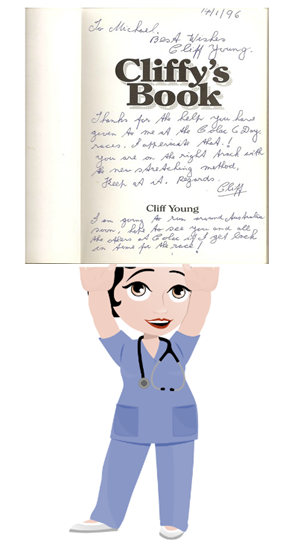 14/1/96
To Michael.
Best Wishes
Cliff Young.
Cliffy's
Book
Thanks for the help you have
given to me at the Colac 6 Day
races. I appreciate that!
you are on the right track with
the new stretching method,
Keep at it. Regards.
Cliff
Cliff Young
I am going to run around Australia
soon, hope to see you and all
the others at Colac if I get back
in time for the race!